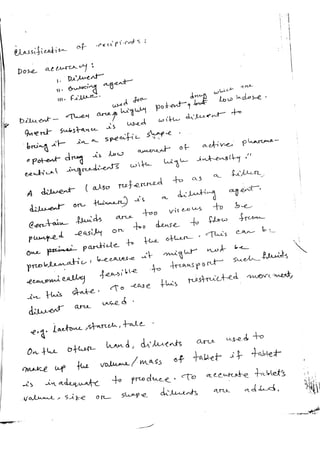 Classification of excipients:
Dose accuracy:
I. Diluent
II. Bulking agent
III. Filler.
Diluent - They are used for highly potent drug which are but low in dose.
Inert substance is used with diluent to
bring it in a specific shape.
"Potent drug is low amount of active pharma-
ceutical ingredients with high intensity."
A diluent (also referred to as a filler,
diluent or thinner) is a diluting agent.
Certain fluids are too viscous to be
pumped easily or too dense to flow from
one particle to the other. This can be
problematic, because it might not be
economically feasible to transport such fluids
in this state. To ease this restricted movement,
diluent are used.
e.g. lactose, starch, talc.
On the other hand, diluents are used to
make up the volume/mass of tablet if tablet
is inadequate to produce. To accurate tablets
volume, size or shape diluents are added.